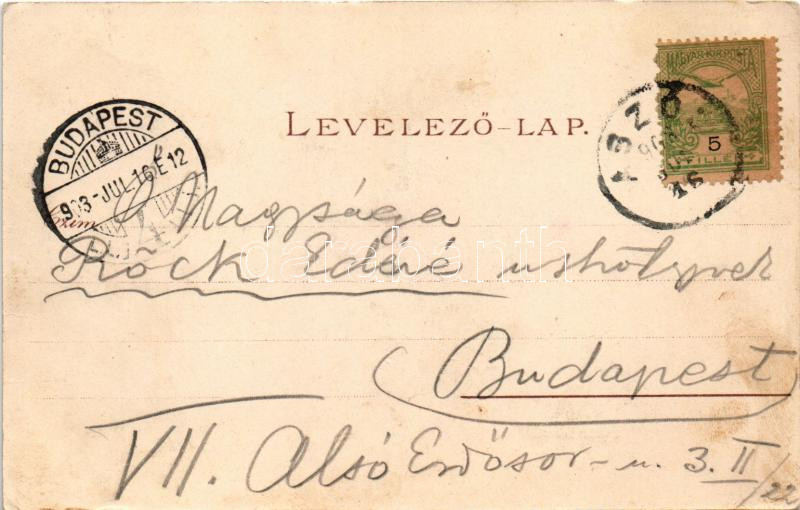 MAGYAR KIR. POSTA
LEVELEZŐ-LAP.
BUDAPEST
903-JUL.16 É.12
5
FILLÉR
16
Ő Nagysága
Röck Edéné urhölgynek
Budapest
VII. Alsó Erdősor-u. 3. II/22
darabanth